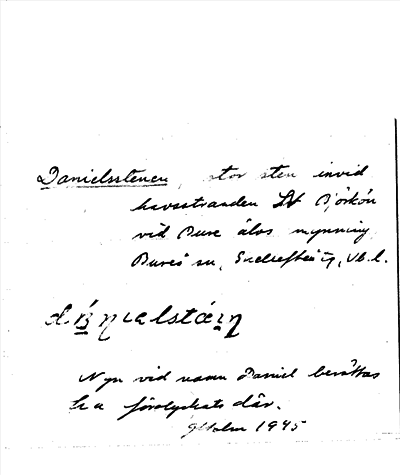 Danielsstenen, stor sten invid
havsstranden SV Björkön
vid Bure älvs mynning
Bureå sn, Skellefteå tg, Vb. l.
Nyn vid namn Daniel berättas
ha förolyckats där.
GHolm 1945